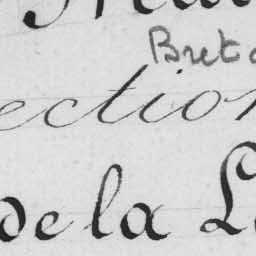 Bret
ection
de la L